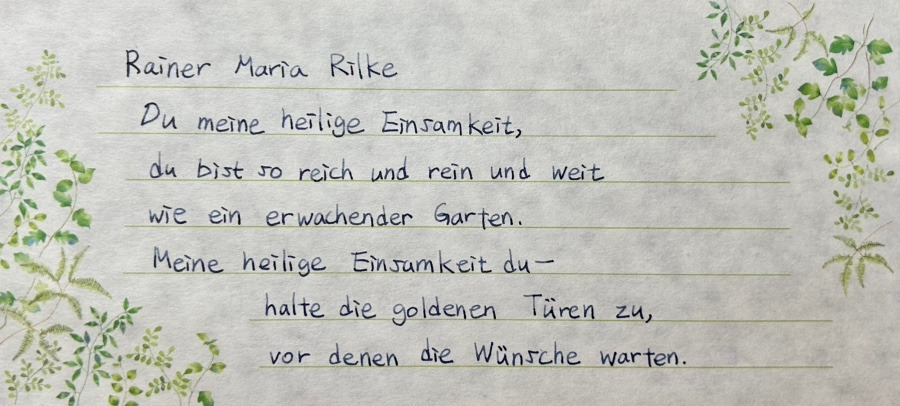 Rainer Maria Rilke
Du meine heilige Einsamkeit,
du bist so reich und rein und weit
wie ein erwachender Garten.
Meine heilige Einsamkeit du—
halte die goldenen Türen zu,
vor denen die Wünsche warten.